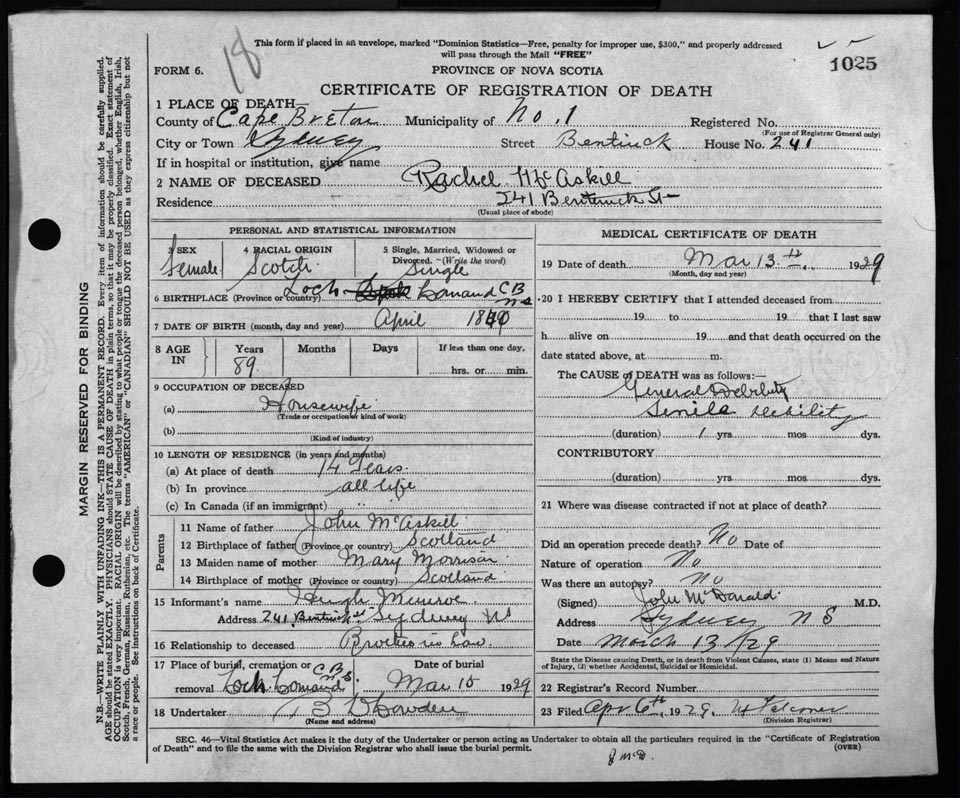 18
This form if placed in an envelope, marked "Dominion Statistics—Free, penalty for improper use, $300," and properly addressed
will pass through the Mail "FREE"
1025
FORM 6.
PROVINCE OF NOVA SCOTIA
CERTIFICATE OF REGISTRATION OF DEATH
1 PLACE OF DEATH—
County of Cape Breton Municipality of No. 1 Registered No.
(For use of Registrar General only)
City or Town Sydney Street Bentinck House No. 241
If in hospital or institution, give name
2 NAME OF DECEASED Rachel McAskill
Residence 241 Bentinck St
(Usual place of abode)
PERSONAL AND STATISTICAL INFORMATION
3 SEX Female
4 RACIAL ORIGIN Scotch
5 Single, Married, Widowed or Divorced. (Write the word) Single
6 BIRTHPLACE (Province or country) Loch Lomand CB NS
7 DATE OF BIRTH (month, day and year) April 1840
8 AGE IN Years 89 Months Days If less than one day, hrs. or min.
9 OCCUPATION OF DECEASED
(a) Housewife
(Trade or occupation or kind of work)
(b)
(Kind of industry)
10 LENGTH OF RESIDENCE (in years and months)
(a) At place of death 14 Years
(b) In province all life
(c) In Canada (if an immigrant)
Parents
11 Name of father John McAskill
12 Birthplace of father (Province or country) Scotland
13 Maiden name of mother Mary Morrison
14 Birthplace of mother (Province or country) Scotland
15 Informant's name Hugh Munroe
Address 241 Bentinck St Sydney NS
16 Relationship to deceased Brother in law
17 Place of burial, cremation or removal Loch Lomand CB NS
Date of burial Mar 15 1929
18 Undertaker
(Name and address)
MEDICAL CERTIFICATE OF DEATH
19 Date of death Mar 13th 1929
(Month, day and year)
20 I HEREBY CERTIFY that I attended deceased from
19 to 19 that I last saw
h alive on 19 and that death occurred on the
date stated above, at m.
The CAUSE OF DEATH was as follows:—
General Debility
Senile debility
(duration) 1 yrs mos dys.
CONTRIBUTORY
(duration) yrs mos dys.
21 Where was disease contracted if not at place of death?
Did an operation precede death? No Date of
Nature of operation No
Was there an autopsy? No
(Signed) John McDonald M.D.
Address Sydney NS
Date March 13/29
State the Disease causing Death, or in death from Violent Causes, state (1) Means and Nature
of Injury, (2) whether Accidental, Suicidal or Homicidal.
22 Registrar's Record Number
23 Filed Apr 6th 1929
(Division Registrar)
SEC. 46—Vital Statistics Act makes it the duty of the Undertaker or person acting as Undertaker to obtain all the particulars required in the "Certificate of Registration
of Death" and to file the same with the Division Registrar who shall issue the burial permit.
(OVER)
J McD
MARGIN RESERVED FOR BINDING
N.B.—WRITE PLAINLY WITH UNFADING INK—THIS IS A PERMANENT RECORD. Every item of information should be carefully supplied.
AGE should be stated EXACTLY. PHYSICIANS should STATE CAUSE OF DEATH in plain terms, so that it may be properly classified. Exact statement of
OCCUPATION is very important. RACIAL ORIGIN will be described by stating to what people or tongue the deceased person belonged, whether English, Irish,
Scotch, French, German, Russian, Ruthenian, etc. The terms "AMERICAN" or "CANADIAN" SHOULD NOT BE USED as they express citizenship but not
a race or people. See instructions on back of Certificate.